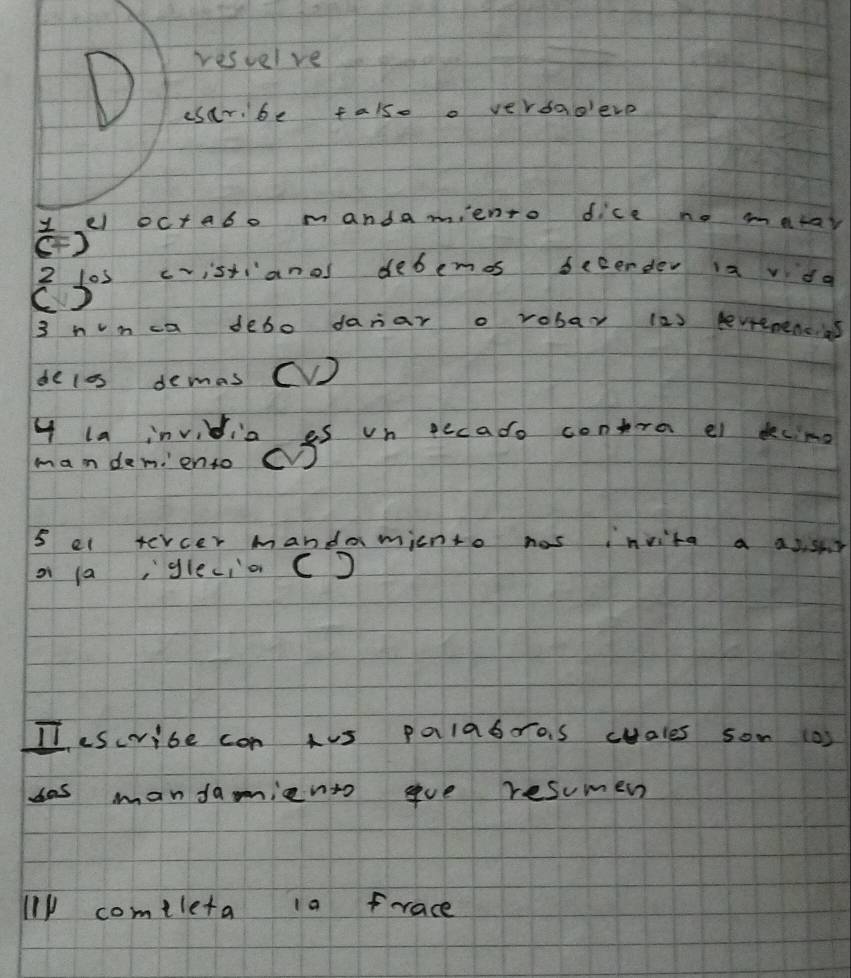 D resuelve
escribe falso o verdadero
1 el octabo mandamiento dice no matar
(F)
2 los cristianos debemos defender la vida
(V)
3 nunca debo dañar o robar las pertenencias
de los demas (V)
4 la invidia es un pecado contra el decimo
mandamiento (V)
5 el tercer mandamiento nos invita a asistir
a la iglecia ( )
II escribe con tus palabras cuales son los
dos mandamiento que resumen
III completa la frace